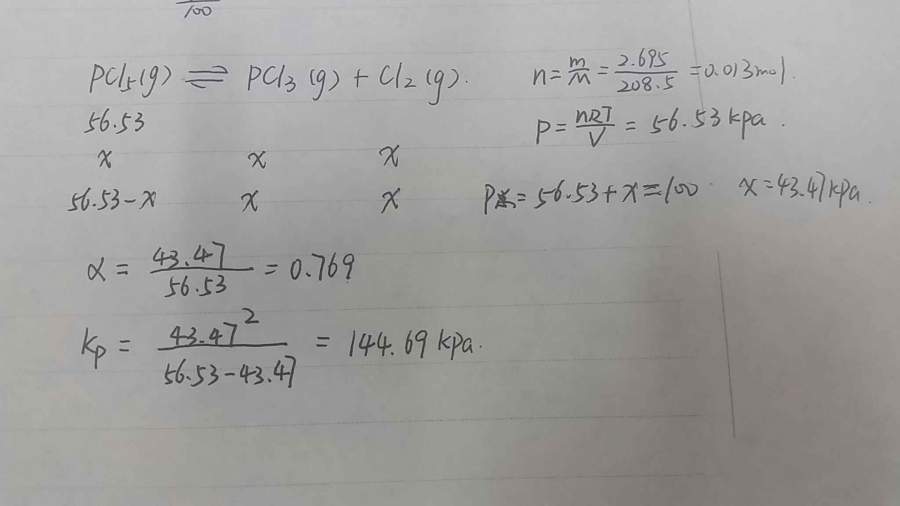 100
PCl₅(g) ⇌ PCl₃(g) + Cl₂(g).
n = m/M = 2.695/208.5 = 0.013mol.
56.53
P = nRT/V = 56.53kpa.
x x x
56.53-x x x
P = 56.53+x = 100 x = 43.47kpa.
α = 43.47/56.53 = 0.769
Kp = 43.47²/(56.53-43.47) = 144.69 kpa.